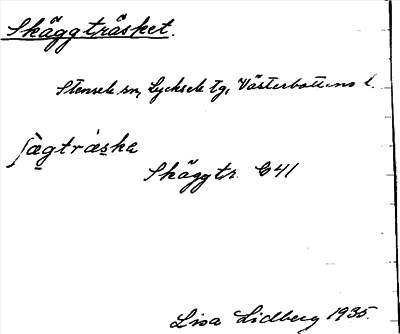 Skäggträsket.
Stensele sn, Lycksele tg, Västerbottens l.
ʃæ̀gtrǻska
Skäggtr. C41
Lisa Lidberg 1935.